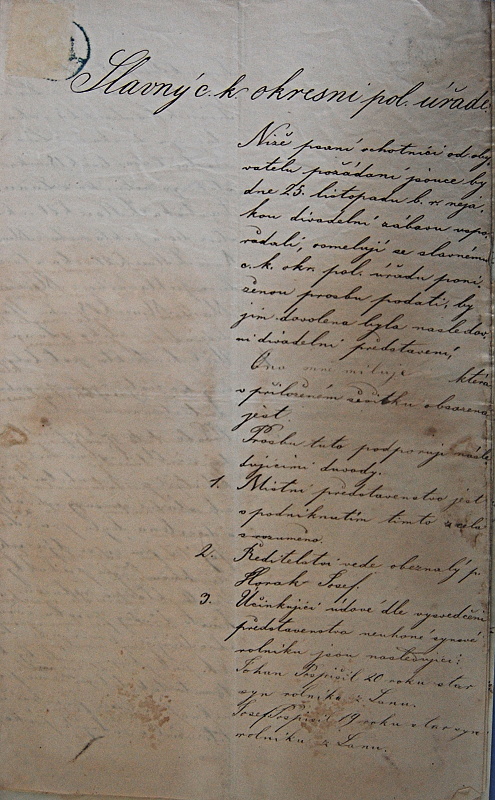 Slavný c. k. okresni pol. úřade
Níže psaní ochotníci od oby-
vatelu požádani jsouce by
dne 25. listopadu b. r. nejá-
kou divadelní zábavu uspo-
řádali, osmelují se slavnému
c. k. okr. pol. úřadu poní-
ženou prosbu podati, by
jim dovolena byla následov-
ní divadelní představení,
Ona mne miluje která
v přiloženém sešitku obsažena
jest
Prosbu tuto podporují násle-
dujícími duvody.
1. Místní představenstvo jest
s podniknutím tímto zcela
srozuměno.
2. Ředitelství vede obeznalý p.
Horák Josef.
3. Účinkující údové dle vysvedčení
představenstva neuhoné synové
rolníku jsou následující:
Johan Pospíšil 20 roku star
syn rolníka z Lanu.
Josef Pospíšil 19 roku star syn
rolníka z Lanu.